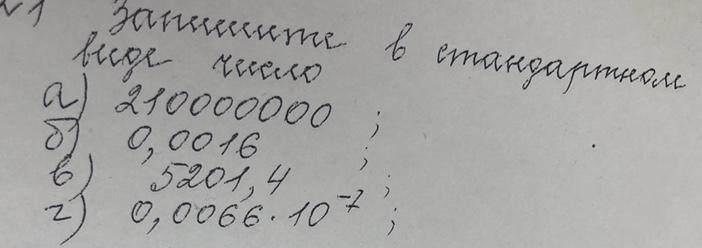 №1 Запишите в стандартном
виде число
а) 210000000 ;
б) 0,0016 ;
в) 5201,4 ;
г) 0,0066·10⁻⁷ ;